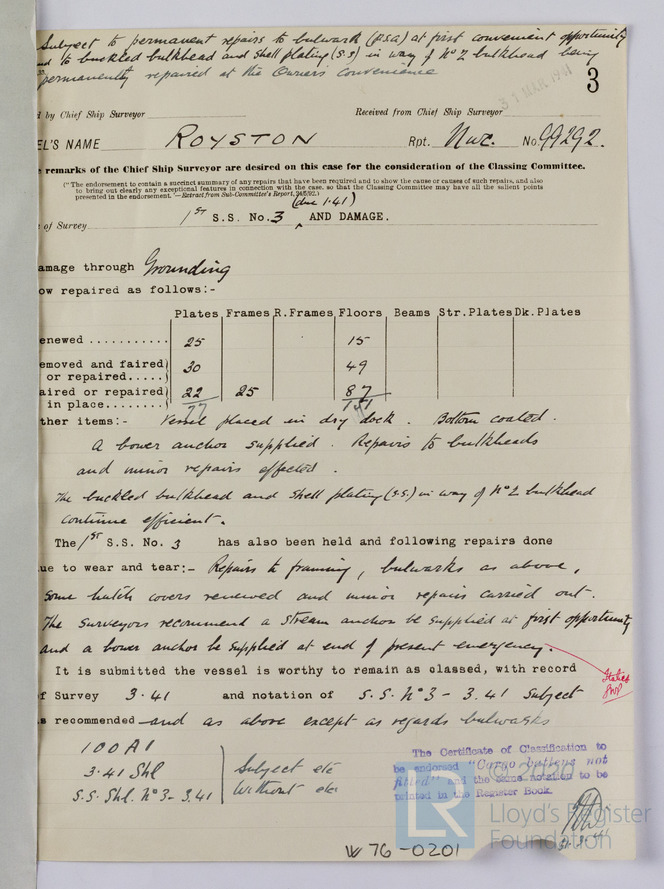 Subject to permanent repairs to bulwark (P.S.A) at first convenient opportunity
nd to buckled bulkhead and shell plating (S.S) in way of No 2 bulkhead being
permanently repaired at the Owners convenience
31 MAR 1941
3
d by Chief Ship Surveyor Received from Chief Ship Surveyor
EL'S NAME ROYSTON Rpt. Nwc. No. 99292.
e remarks of the Chief Ship Surveyor are desired on this case for the consideration of the Classing Committee.
("The endorsement to contain a succinct summary of any repairs that have been required and to show the cause or causes of such repairs, and also
to bring out clearly any exceptional features in connection with the case, so that the Classing Committee may have all the salient points
presented in the endorsement."—Retract from Sub-Committee's Report,
(due 1.41)
of Survey 1ST S.S. No. 3 AND DAMAGE.
amage through Grounding
ow repaired as follows:-
Plates Frames R.Frames Floors Beams Str.Plates Dk.Plates
enewed ........... 25 15
emoved and faired) 30 49
or repaired.....)
aired or repaired) 22 25 87
in place........) 77 151
ther items:- Vessel placed in dry dock. Bottom coated.
A bower anchor supplied. Repairs to bulkheads
and minor repairs effected.
The buckled bulkhead and shell plating (S.S.) in way of No 2 bulkhead
continue efficient.
The 1ST S.S. No. 3 has also been held and following repairs done
ue to wear and tear:- Repairs to framing, bulwarks as above,
some hatch covers renewed and minor repairs carried out.
The surveyors recommend a stream anchor be supplied at first opportunity
and a bower anchor be supplied at end of present emergency.
It is submitted the vessel is worthy to remain as classed, with record
f Survey 3.41 and notation of S.S. No 3 - 3.41 Subject
s recommended and as above except as regards bulwarks
100A1
3.41 Shl
S.S. Shl. No 3 - 3.41
Subject etc
Without etc
The Certificate of Classification to
be endorsed "Cargo battens not
fitted" and the same notation to be
printed in the Register Book.
LR
Lloyd's Register
Foundation
W 76-0201